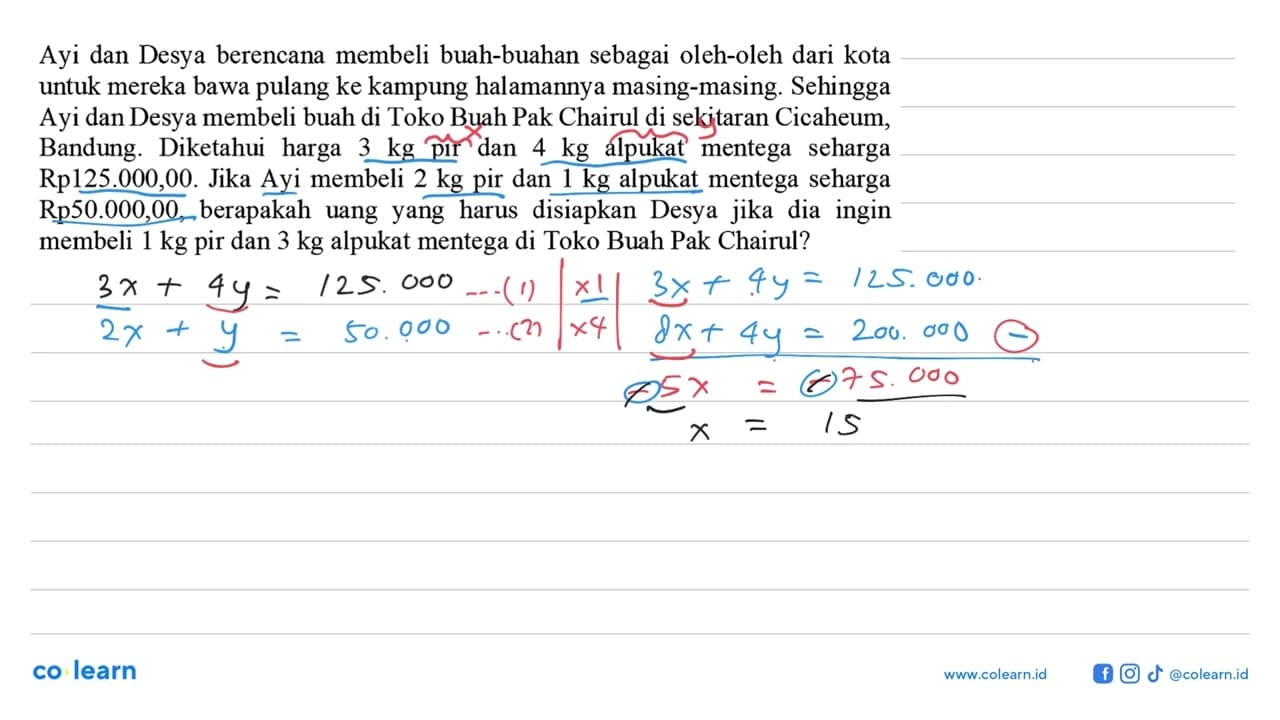 Ayi dan Desya berencana membeli buah-buahan sebagai oleh-oleh dari kota
untuk mereka bawa pulang ke kampung halamannya masing-masing. Sehingga
Ayi dan Desya membeli buah di Toko Buah Pak Chairul di sekitaran Cicaheum,
x y
Bandung. Diketahui harga 3 kg pir dan 4 kg alpukat mentega seharga
Rp125.000,00. Jika Ayi membeli 2 kg pir dan 1 kg alpukat mentega seharga
Rp50.000,00, berapakah uang yang harus disiapkan Desya jika dia ingin
membeli 1 kg pir dan 3 kg alpukat mentega di Toko Buah Pak Chairul?
3x + 4y = 125.000 ---(1) | ×1 | 3x + 4y = 125.000.
2x + y = 50.000 -..(2) | ×4 | 8x + 4y = 200.000 −
-5x = -75.000
x = 15
co learn
www.colearn.id @colearn.id